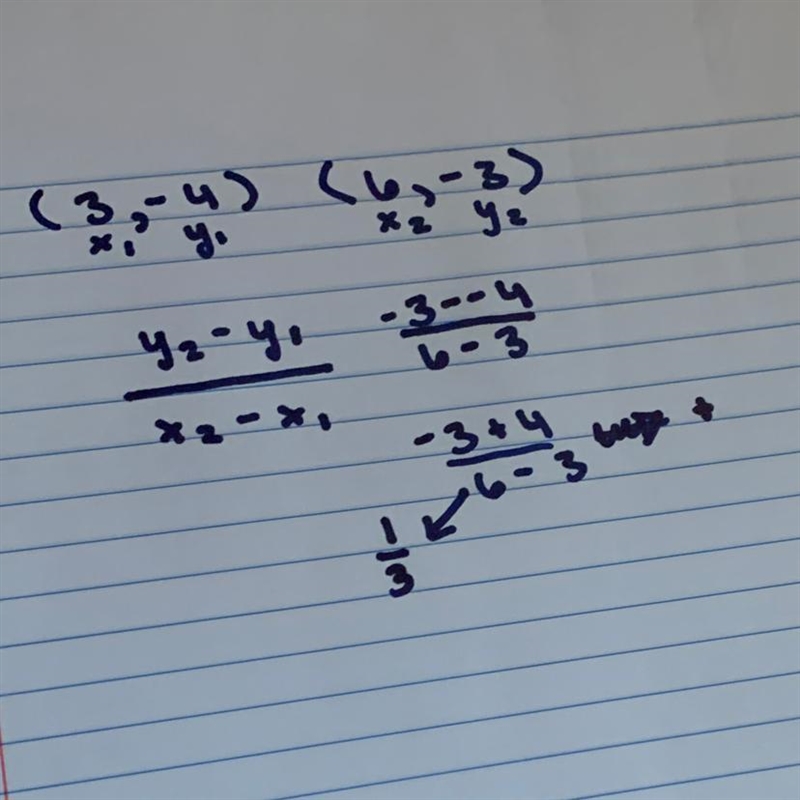 (3, -4) (6, -3)
x₁ y₁ x₂ y₂
y₂ - y₁
x₂ - x₁
-3 - - 4
6 - 3
-3 + 4
6 - 3
+
1
3